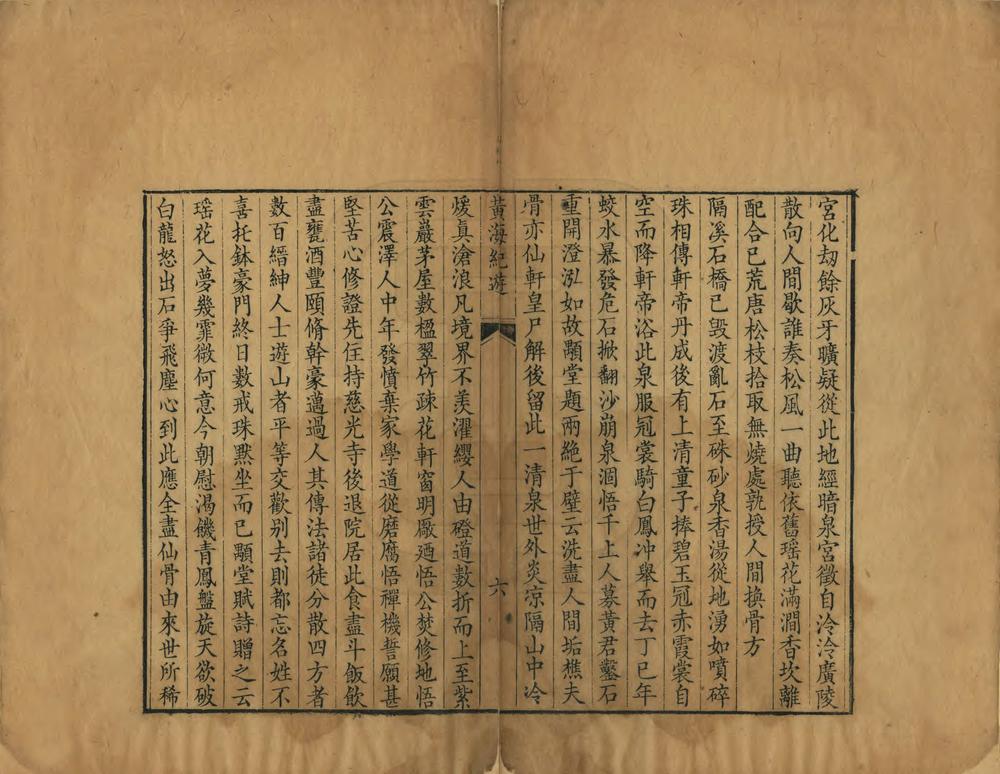 宮化劫餘灰牙曠疑從此地經暗泉宮徵自泠泠廣陵
散向人間歇誰奏松風一曲聽依舊瑶花滿澗香坎離
配合已荒唐松枝拾取無燒處孰授人間換骨方
隔溪石橋已毀渡亂石至硃砂泉香湯從地湧如噴碎
珠相傳軒帝丹成後有上清童子捧碧玉冠赤霞裳自
空而降軒帝浴此泉服冠裳騎白鳳冲舉而去丁巳年
蛟水暴發危石掀翻沙崩泉涸悟千上人募黄君鑿石
重開澄泓如故顒堂題兩絶于壁云洗盡人間垢樵夫
骨亦仙軒皇尸解後留此一清泉世外炎凉隔山中冷
黃海紀遊
六
煖眞滄浪凡境界不羡濯纓人由磴道數折而上至紫
雲巖茅屋數楹翠竹疎花軒窗明厰廼悟公焚修地悟
公震澤人中年發憤棄家學道從磨腐悟禪機誓願甚
堅苦心修證先住持慈光寺後退院居此食盡斗飯飲
盡甕酒豐頤脩幹豪邁過人其傳法諸徒分散四方者
數百縉紳人士遊山者平等交歡别去則都忘名姓不
喜托鉢豪門終日數戒珠黙坐而已顒堂賦詩贈之云
瑶花入夢幾霏微何意今朝慰渴饑青鳳盤旋天欲破
白龍怒出石爭飛塵心到此應全盡仙骨由來世所稀